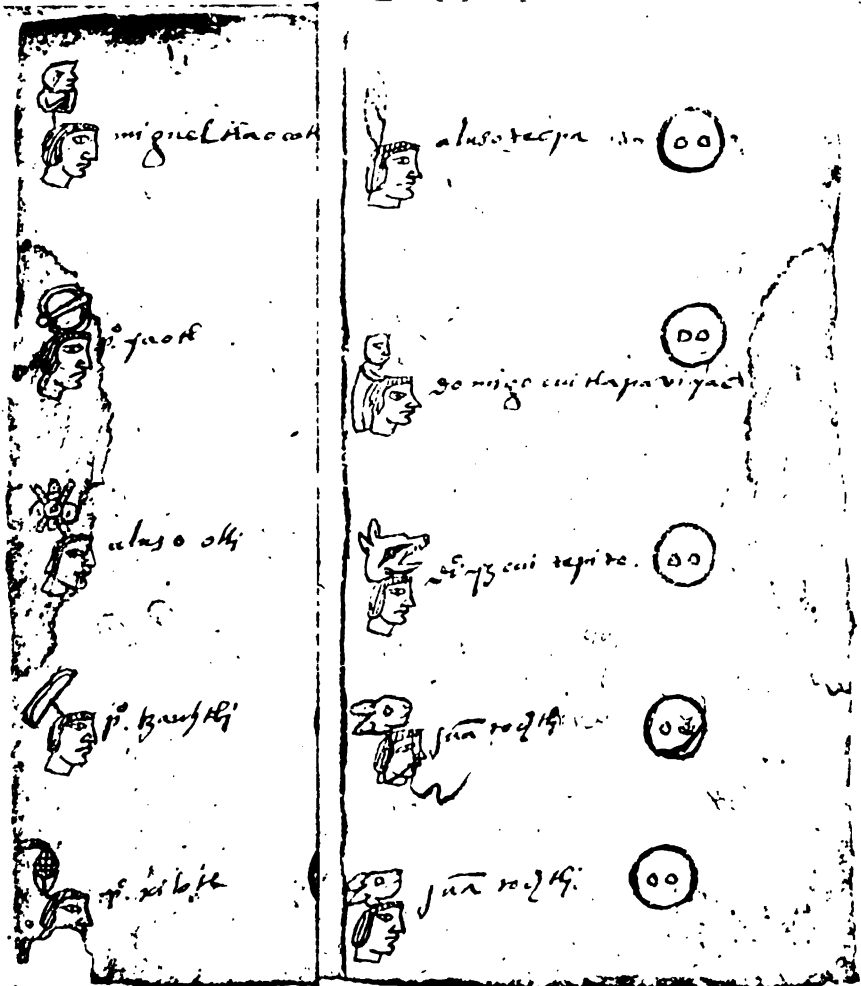 miguel tlacotl
po. yaotl
aluso olli
po. tzauhtli
po. xilotl
aluso tecpa
domigo cuitlapaviyac
juā tochtli
juā tochtli